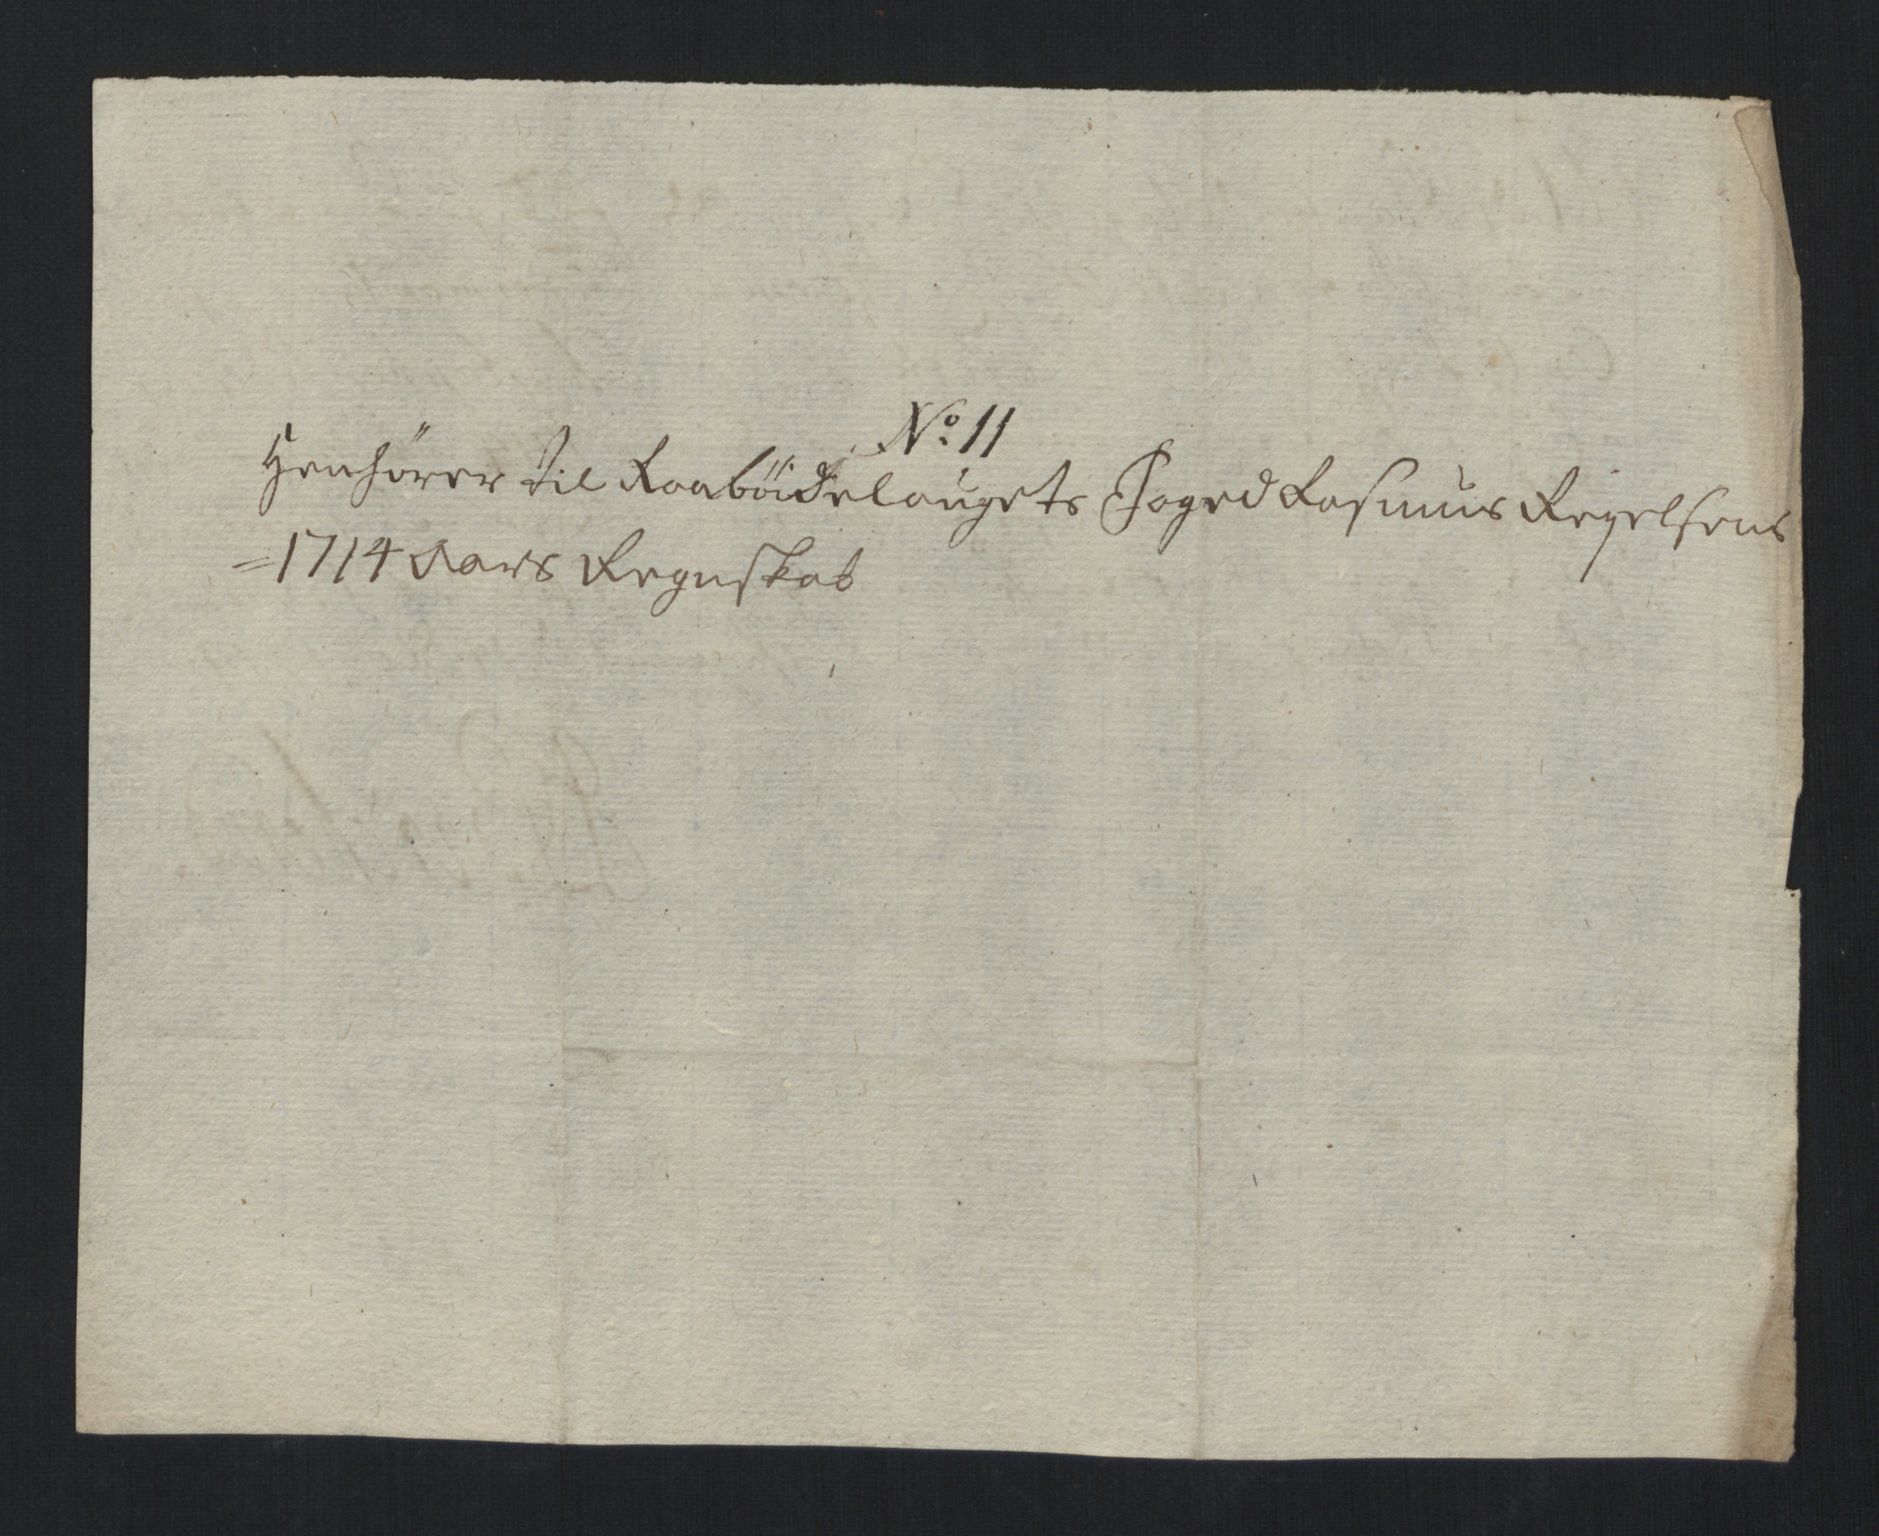 No 11
Henhörer til Raaböidelaugets Foged Rasmus Regelsens
=1714 Aars Regnskab